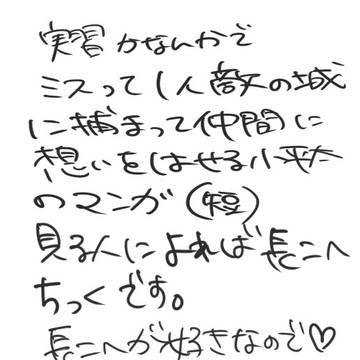 実習かなんかで
ミスって1人敵の城
に捕まって仲間に
想いをはせる小平太
のマンガ(短)
見る人によれば長こへ
ちっくです。
長こへが好きなので♡